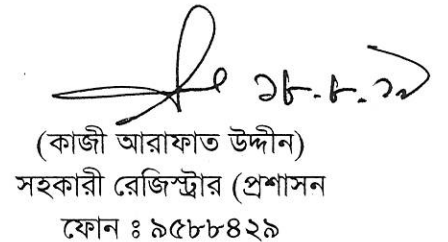 ১৮.৮.১৯
(কাজী আরাফাত উদ্দীন)
সহকারী রেজিস্ট্রার (প্রশাসন
ফোন ঃ ৯৫৮৮৪২৯